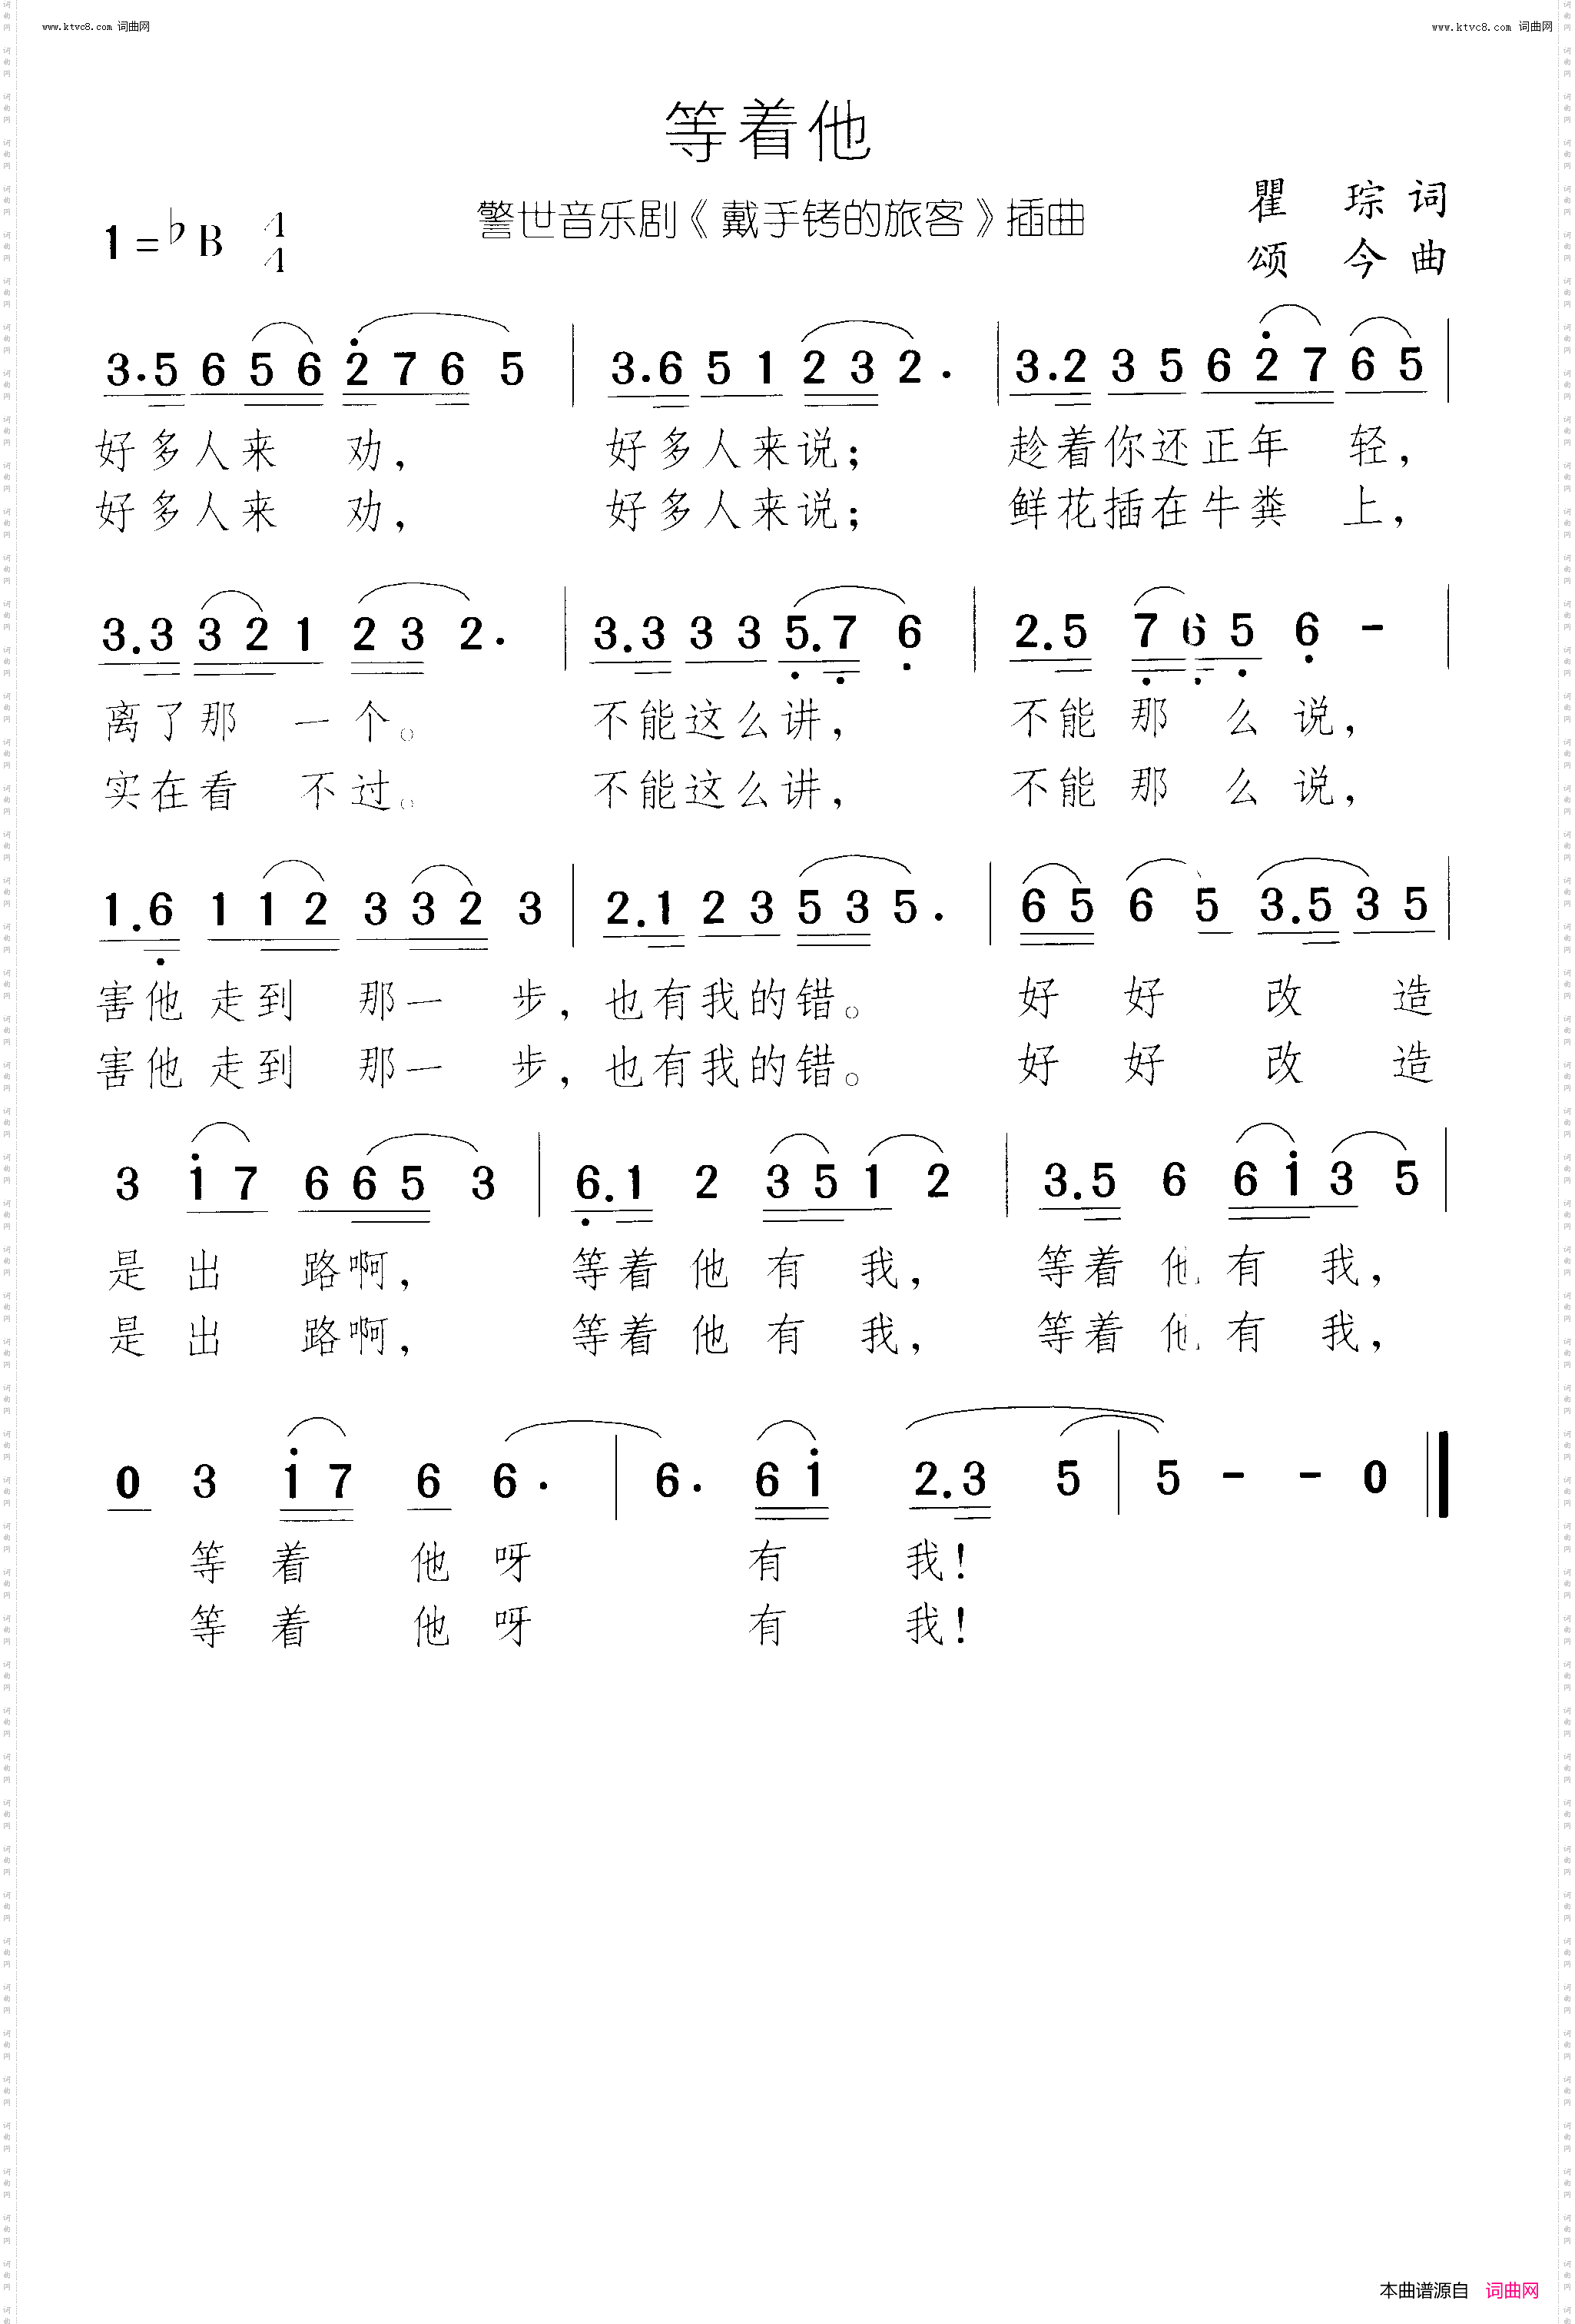 www.ktvc8.com 词曲网
www.ktvc8.com 词曲网
等着他
警世音乐剧《戴手铐的旅客》插曲
瞿 琮 词
颂 今 曲
1=♭B 4/4
3.5 6 5 6 2 7 6 5 | 3.6 5 1 2 3 2. | 3.2 3 5 6 2 7 6 5 |
好多人来 劝， 好多人来说； 趁着你还正年 轻，
好多人来 劝， 好多人来说； 鲜花插在牛粪 上，
3.3 3 2 1 2 3 2. | 3.3 3 3 5.7 6 | 2.5 7 6 5 6 - |
离了那 一个。 不能这么讲， 不能 那 么 说，
实在看 不过。 不能这么讲， 不能 那 么 说，
1.6 1 1 2 3 3 2 3 | 2.1 2 3 5 3 5. | 6 5 6 5 3.5 3 5 |
害他 走到 那一 步，也有我的错。 好 好 改 造
害他 走到 那一 步，也有我的错。 好 好 改 造
3 1 7 6 6 5 3 | 6.1 2 3 5 1 2 | 3.5 6 6 1 3 5 |
是 出 路啊， 等着 他 有 我， 等着 他 有 我，
是 出 路啊， 等着 他 有 我， 等着 他 有 我，
0 3 1 7 6 6. | 6. 6 1 2.3 5 | 5 - - 0 ‖
等 着 他 呀 有 我！
等 着 他 呀 有 我！
本曲谱源自 词曲网